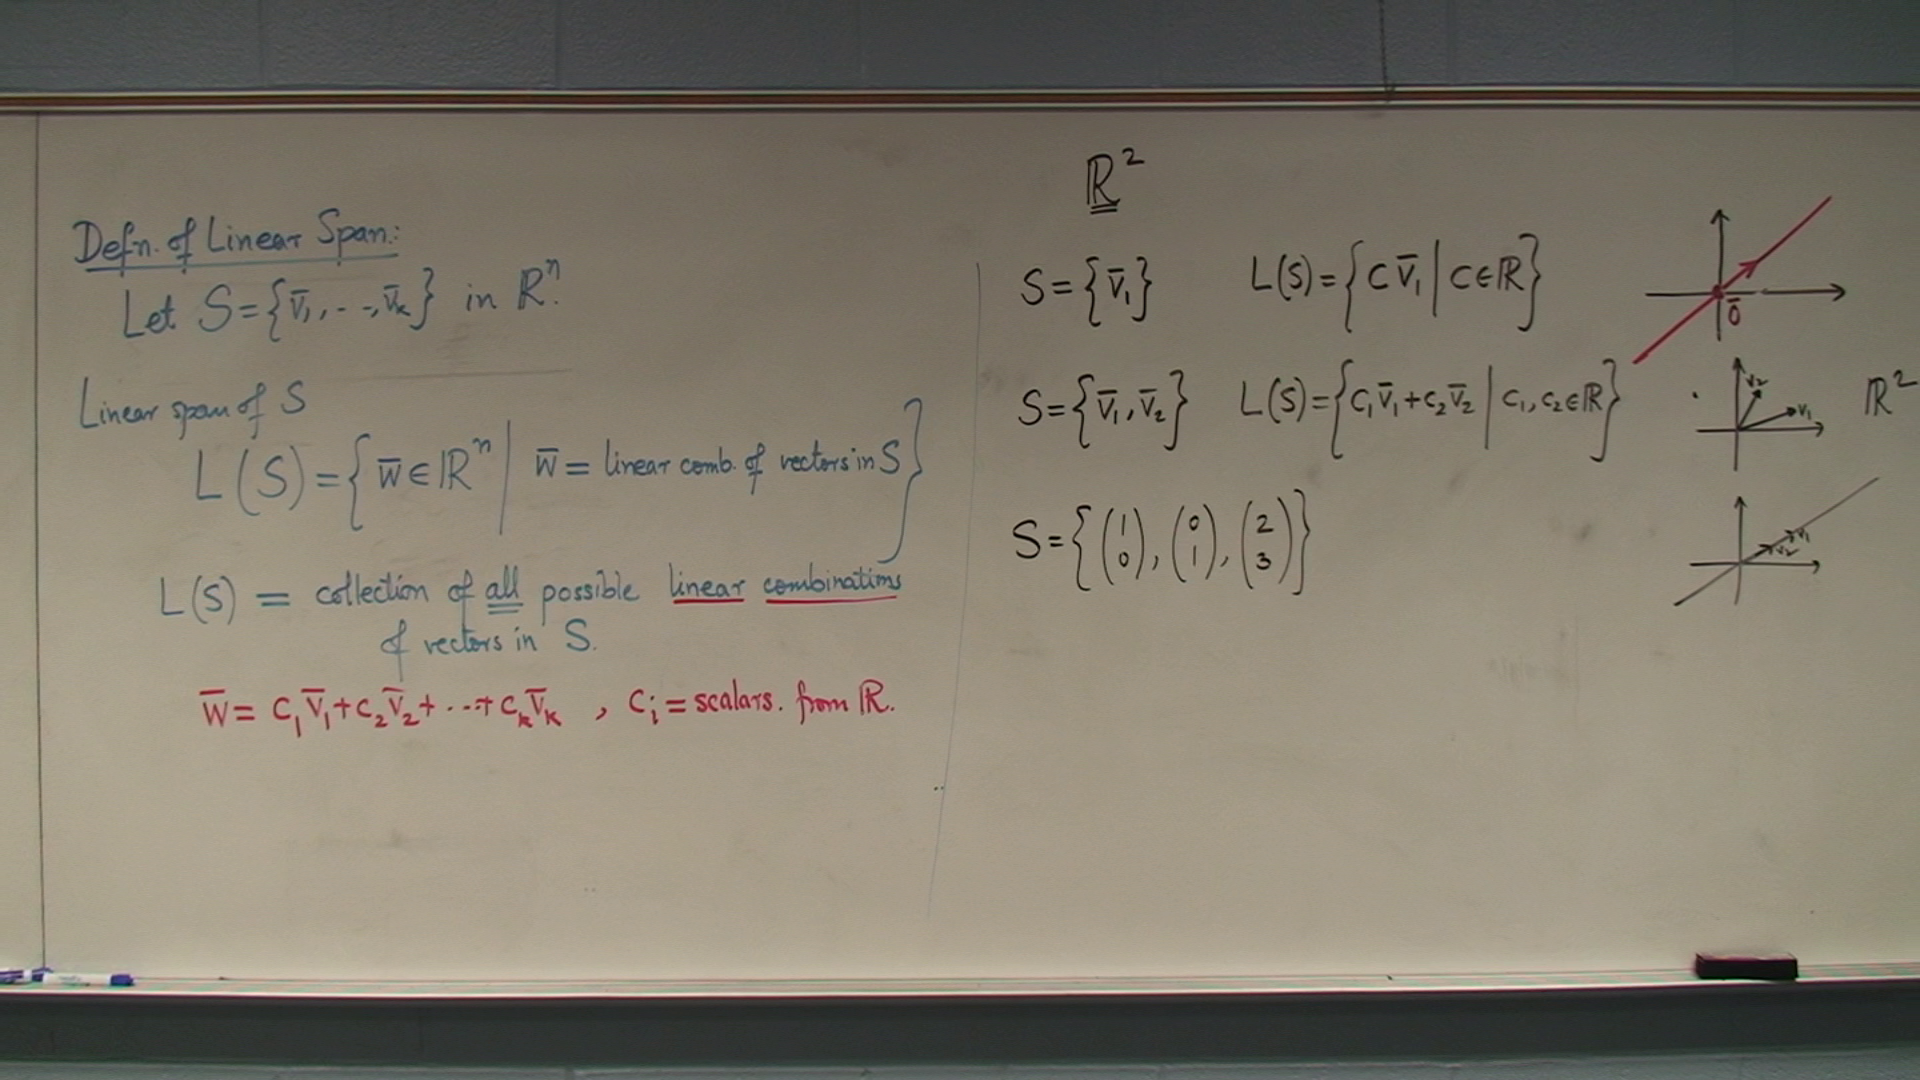 Defn. of Linear Span:
Let S={v̄₁,...,v̄ₖ} in ℝⁿ.
Linear span of S
L(S)={w̄∈ℝⁿ | w̄ = linear comb. of vectors in S}
L(S) = collection of all possible linear combinations
of vectors in S.
w̄= c₁v̄₁+c₂v̄₂+...+cₖv̄ₖ , cᵢ = scalars. from ℝ.
ℝ²
S={v̄₁} L(S)={c v̄₁ | c∈ℝ}
0̄
S={v̄₁, v̄₂} L(S)={c₁v̄₁+c₂v̄₂ | c₁, c₂∈ℝ}
v₂ v₁ ℝ²
S={(1 0), (0 1), (2 3)}
v₂ v₁